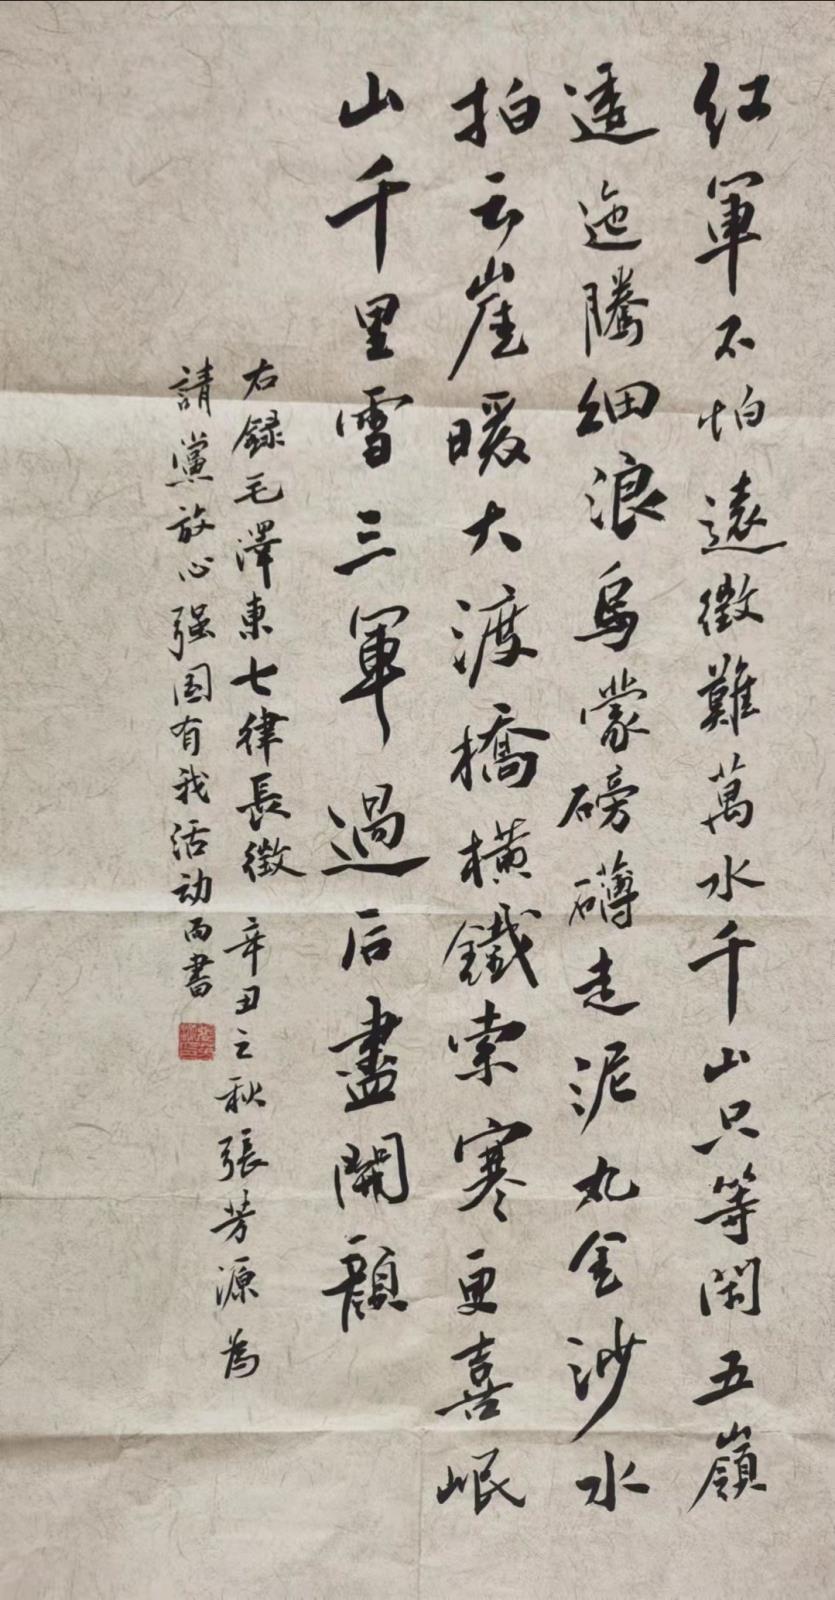 红軍不怕遠徵難萬水千山只等閑五嶺
逶迤騰细浪烏蒙磅礴走泥丸金沙水
拍云崖暖大渡橋橫鐵索寒更喜岷
山千里雪三軍過后盡開顏
右録毛澤東七律長徵 辛丑之秋張芳源為
請黨放心强国有我活动而書